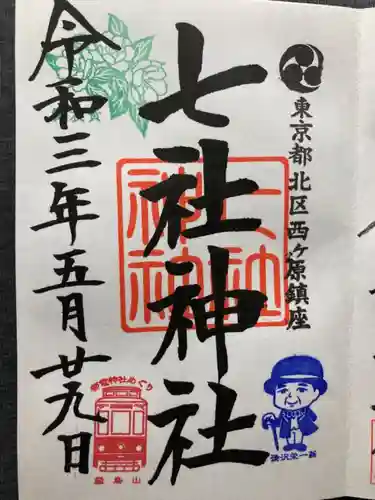 東京都北区西ヶ原鎮座
七社神社
令和三年五月廿九日
七社神社
飛鳥山
渋沢栄一翁